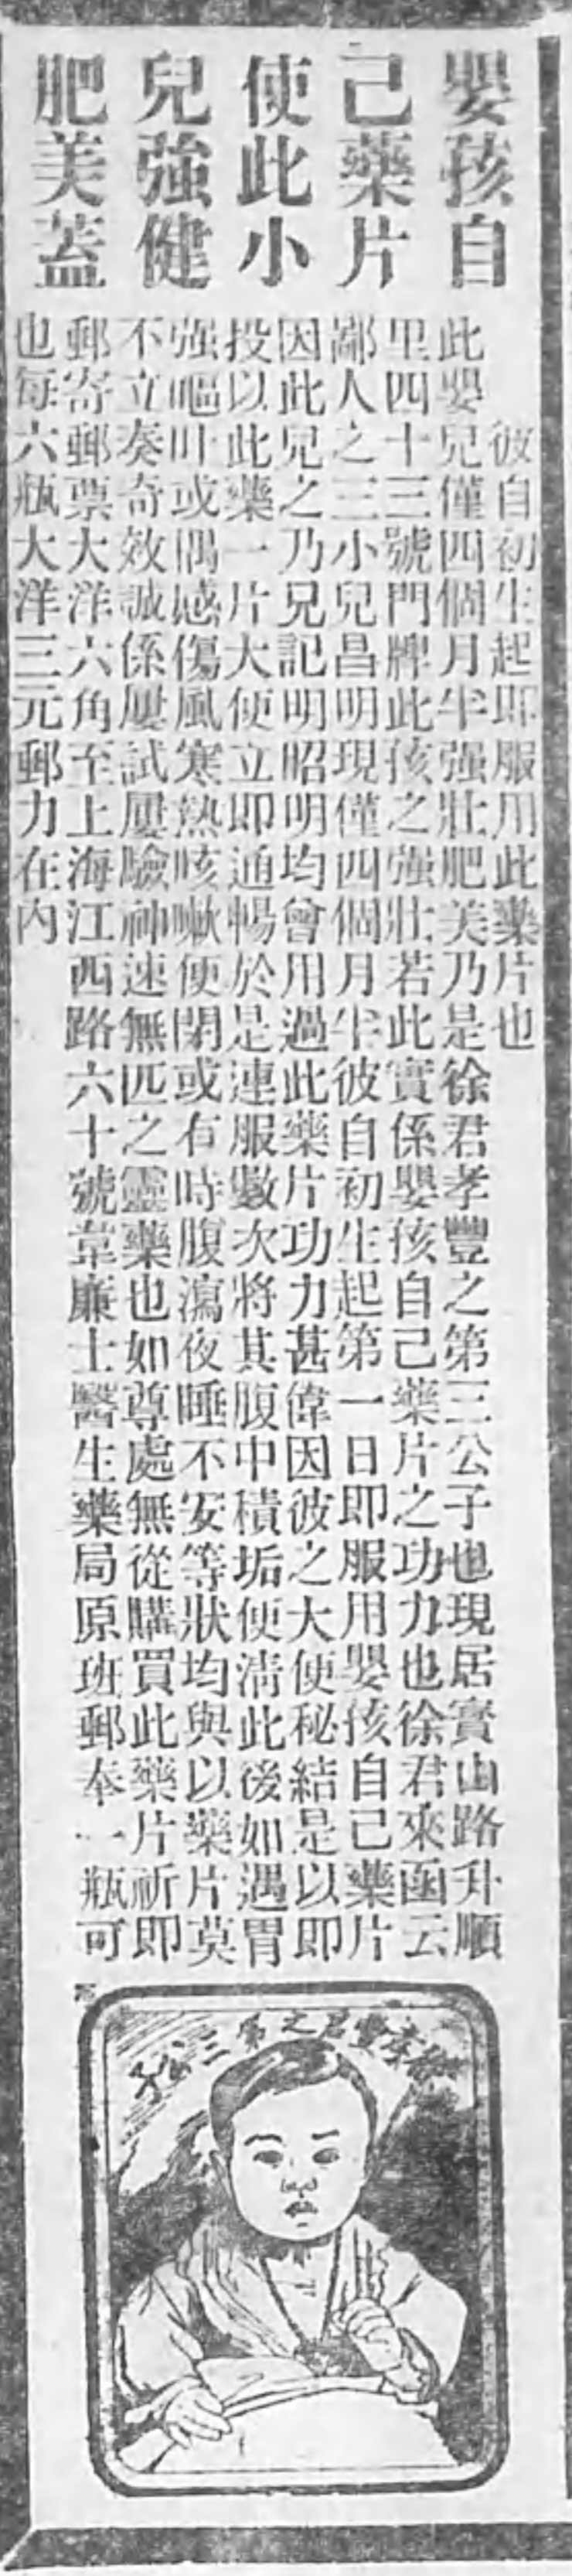 嬰孩自
己藥片
使此小
兒強健
肥美蓋
彼自初生起即服用此藥片也
此嬰兒僅四個月半强壯肥美乃是徐君孝豐之第三公子也現居寶山路升順
里四十三號門牌此孩之强壯若此實係嬰孩自己藥片之功力也徐君來函云
鄙人之三小兒昌明現僅四個月半彼自初生起第一日即服用嬰孩自己藥片
因此兒之乃兄記明昭明均曾用過此藥片功力甚偉因彼之大便秘結是以即
投以此藥一片大便立即通暢於是連服數次將其腹中積垢便淸此後如遇胃
强嘔吐或偶感傷風寒熱咳嗽便閉或有時腹瀉夜睡不安等狀均與以藥片莫
不立奏奇效誠係屢試屢驗神速無匹之靈藥也如尊處無從購買此藥片祈即
郵寄郵票大洋六角至上海江西路六十號韋廉士醫生藥局原班郵奉一瓶可
也每六瓶大洋三元郵力在內
徐孝豐君之第三公子